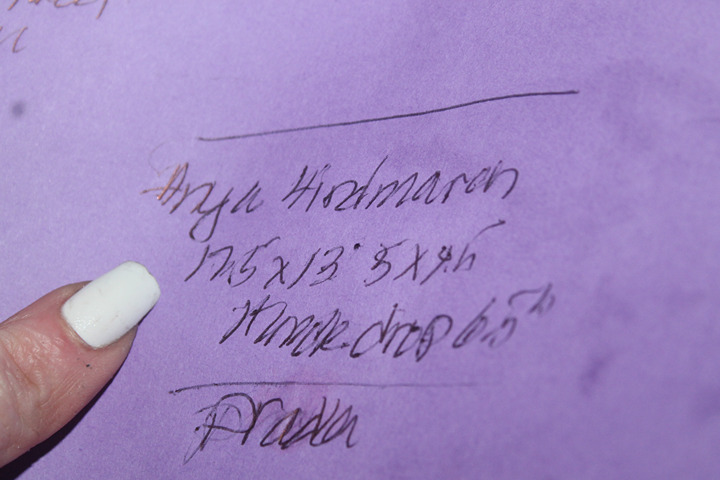 Anya Hindmarch
12.5 x 13.5 x 4.5
drop 6.5"
Prada